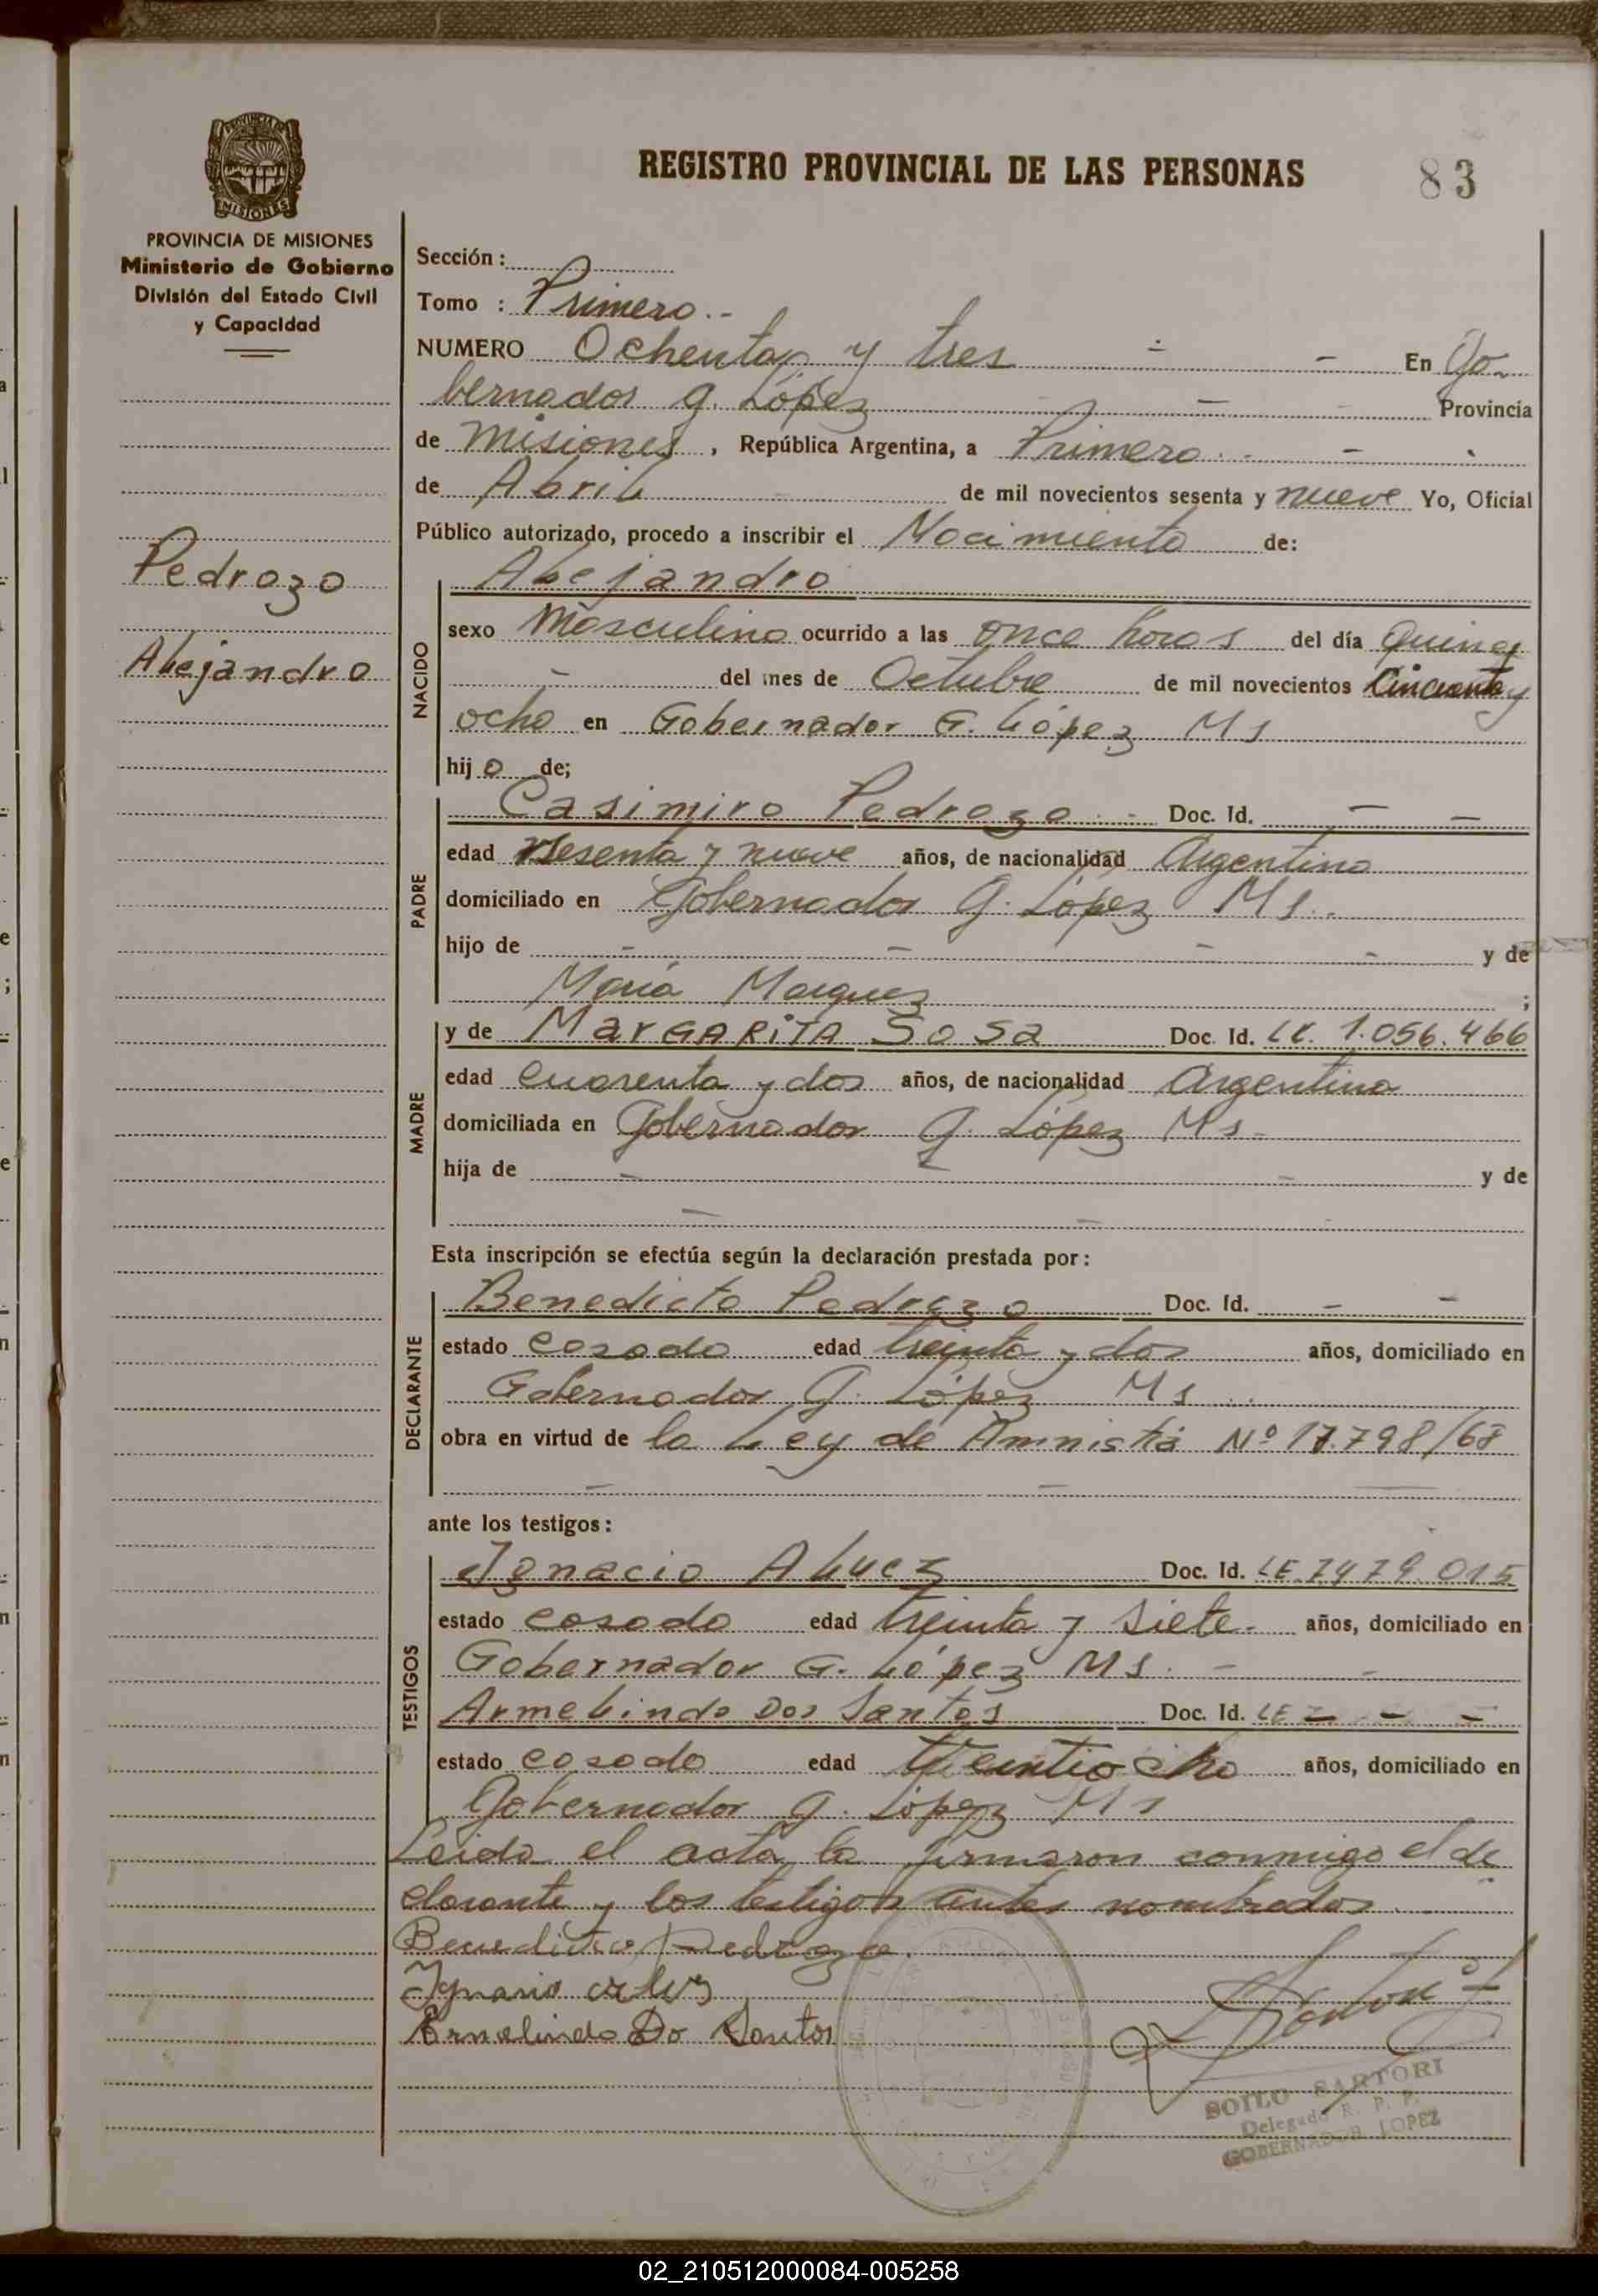 REGISTRO PROVINCIAL DE LAS PERSONAS
83
PROVINCIA DE MISIONES
MISIONES
PROVINCIA DE MISIONES
Ministerio de Gobierno
División del Estado Civil
y Capacidad
Pedrozo
Alejandro
Sección :
Tomo : Primero.-
NUMERO Ochenta y tres - - En Go-
bernador G. López - Provincia
de Misiones , República Argentina, a Primero. - -
de Abril de mil novecientos sesenta y nueve Yo, Oficial
Público autorizado, procedo a inscribir el Nacimiento de:
NACIDO
Alejandro
sexo Masculino ocurrido a las once horas del día Quince
- del mes de Octubre de mil novecientos Cincuenta y
ocho en Gobernador G. López Ms
hij o de;
PADRE
Casimiro Pedrozo . - Doc. Id. - -
edad sesenta y nueve años, de nacionalidad Argentina
domiciliado en Gobernador G. López Ms.
hijo de - - - - y de
María Marquez ;
MADRE
y de MARGARITA SOSA Doc. Id. LC. 1.056.466
edad cuarenta y dos años, de nacionalidad Argentina
domiciliada en Gobernador G. López Ms-
hija de - - y de
- - -
Esta inscripción se efectúa según la declaración prestada por:
DECLARANTE
Benedicto Pedrozo Doc. Id. - -
estado casado edad treinta y dos años, domiciliado en
Gobernador G. López Ms.
obra en virtud de la Ley de Amnistia Nº 17.798/68
- - -
ante los testigos:
TESTIGOS
Ignacio Aluez Doc. Id. LE.7479.015
estado casado edad treinta y siete- años, domiciliado en
Gobernador G. López Ms. - -
Armelindo Dos Santos Doc. Id. LE - - -
estado casado edad veintiocho años, domiciliado en
Gobernador G. López Ms
Leida el acta la firmaron conmigo el de
clarante y los testigos antes nombrados
Benedicto Pedrozo.
Ignasio
Ermelindo Do Santos
SOILO SARTORI
Delegado R. P. P.
GOBERNADOR LOPEZ
02_210512000084-005258